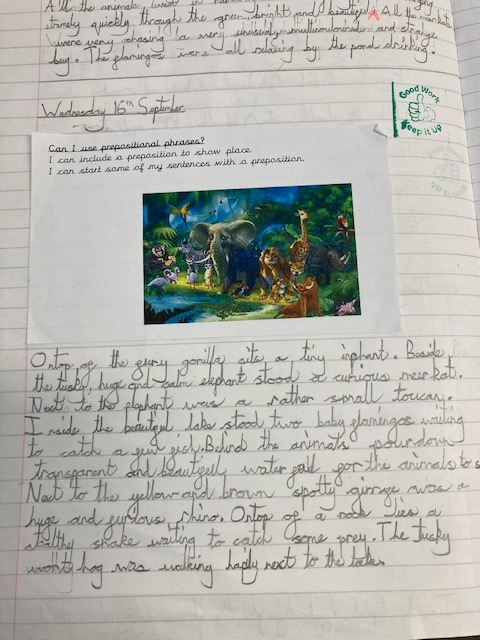 All the animals
trimely quickly through the green, bright and beautiful. All the
were very chasing a very unusial, multicouloured and strange
bug. The flamingos were all relaxing by the pond drinking.
Wednesday 16th September
Good Work
Keep it Up
Can I use prepositional phrases?
I can include a preposition to show place.
I can start some of my sentences with a preposition.
Ontop of the fury gorilla sits a tiny inphant. Beside
the tusky, huge and calm elephant stood a curious meerkat.
Next to the elephant was a rather small toucan.
Inside the beautyful lake stood two baby flamingos waiting
to catch a few fish. Behind the animals pour down
transparent and beautyfull water for the animals to s
Next to the yellow and brown spotty giraffe was a
huge and furious rhino. Ontop of a rock lies a
stealthy snake waiting to catch some prey. The tusky
hog was walking haply next to the lake.